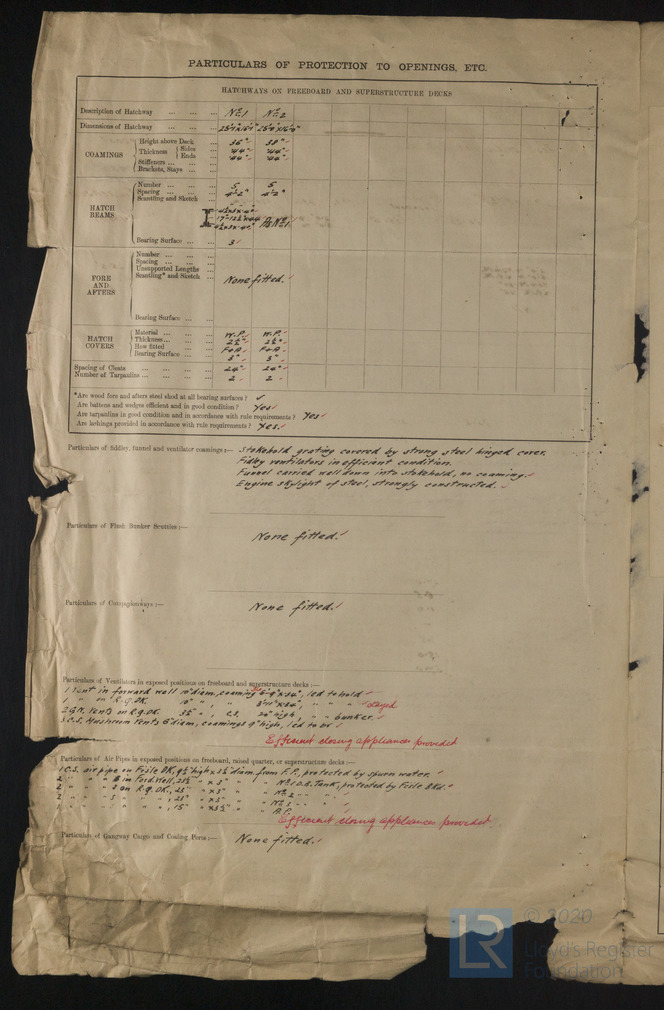 PARTICULARS OF PROTECTION TO OPENINGS, ETC.
HATCHWAYS ON FREEBOARD AND SUPERSTRUCTURE DECKS
Description of Hatchway ... ... ... Nº1 Nº2
Dimensions of Hatchway ... ...
COAMINGS
Height above Deck ... 36" 39"
Thickness Sides .44" .44"
Ends .44" .44"
Stiffeners ... ...
Brackets, Stays ... ...
HATCH BEAMS
Number ... ... ... 5 5
Spacing ... ... ... 4'-2" 4'-2"
Scantling and Sketch
As Nº1
Bearing Surface ... ... 3"
FORE AND AFTERS
Number ... ... ...
Spacing ... ... ...
Unsupported Lengths ...
Scantling* and Sketch ... None fitted.
Bearing Surface ... ...
HATCH COVERS
Material ... ... ... W.P. W.P.
Thickness... ... ... 2½" 2½"
How fitted ... ... F&A. F&A.
Bearing Surface ... ... 3" 3"
Spacing of Cleats ... ... ... 24" 24"
Number of Tarpaulins ... ... ... 2 2
*Are wood fore and afters steel shod at all bearing surfaces? ✓
Are battens and wedges efficient and in good condition? Yes
Are tarpaulins in good condition and in accordance with rule requirements? Yes
Are lashings provided in accordance with rule requirements? Yes.
Particulars of fiddley, funnel and ventilator coamings:— Stokehold grating covered by strong steel hinged cover.
Fidley ventilators in efficient condition.
Funnel carried well down into stokehold, no coaming.
Engine skylight of steel, strongly constructed.
Particulars of Flush Bunker Scuttles:—
None fitted.
Particulars of Companionways:—
None fitted.
Particulars of Ventilators in exposed positions on freeboard and superstructure decks:—
1 Vent in forward well 10" diam, coaming led to hold
1 " on R.Q.DK. 10" " "
2 G.N. Vents on R.Q.DK. " C.S. high, " " bunker.
3 C.S. Mushroom Vents 6" diam, coamings 9" high, led to
Efficient closing appliances provided
Particulars of Air Pipes in exposed positions on freeboard, raised quarter, or superstructure decks:—
1 C.S. air pipe on Fo'sle DK, high x diam. from F.P., protected by spurn water.
2 " " " in Ford. Well, " x 3" " " Nº1 D.B. Tank, protected by Fo'sle Bkd.
2 " " on R.Q.DK., 25" x 3" " Nº2 " "
2 " " " " , 25" " x 3" " Nº3 " "
1 " " " " , 15" " " A.P.
Efficient closing appliances provided
Particulars of Gangway Cargo and Coaling Ports:— None fitted.
LR
© 2020
Lloyd's Register
Foundation